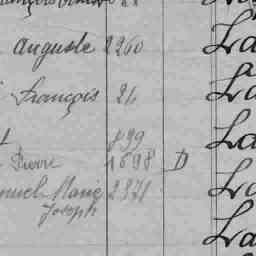 Auguste 2260 La
François 26 La
t 899 La
Pierre 1698 D La
nuel Marie 2371 La
Joseph
La